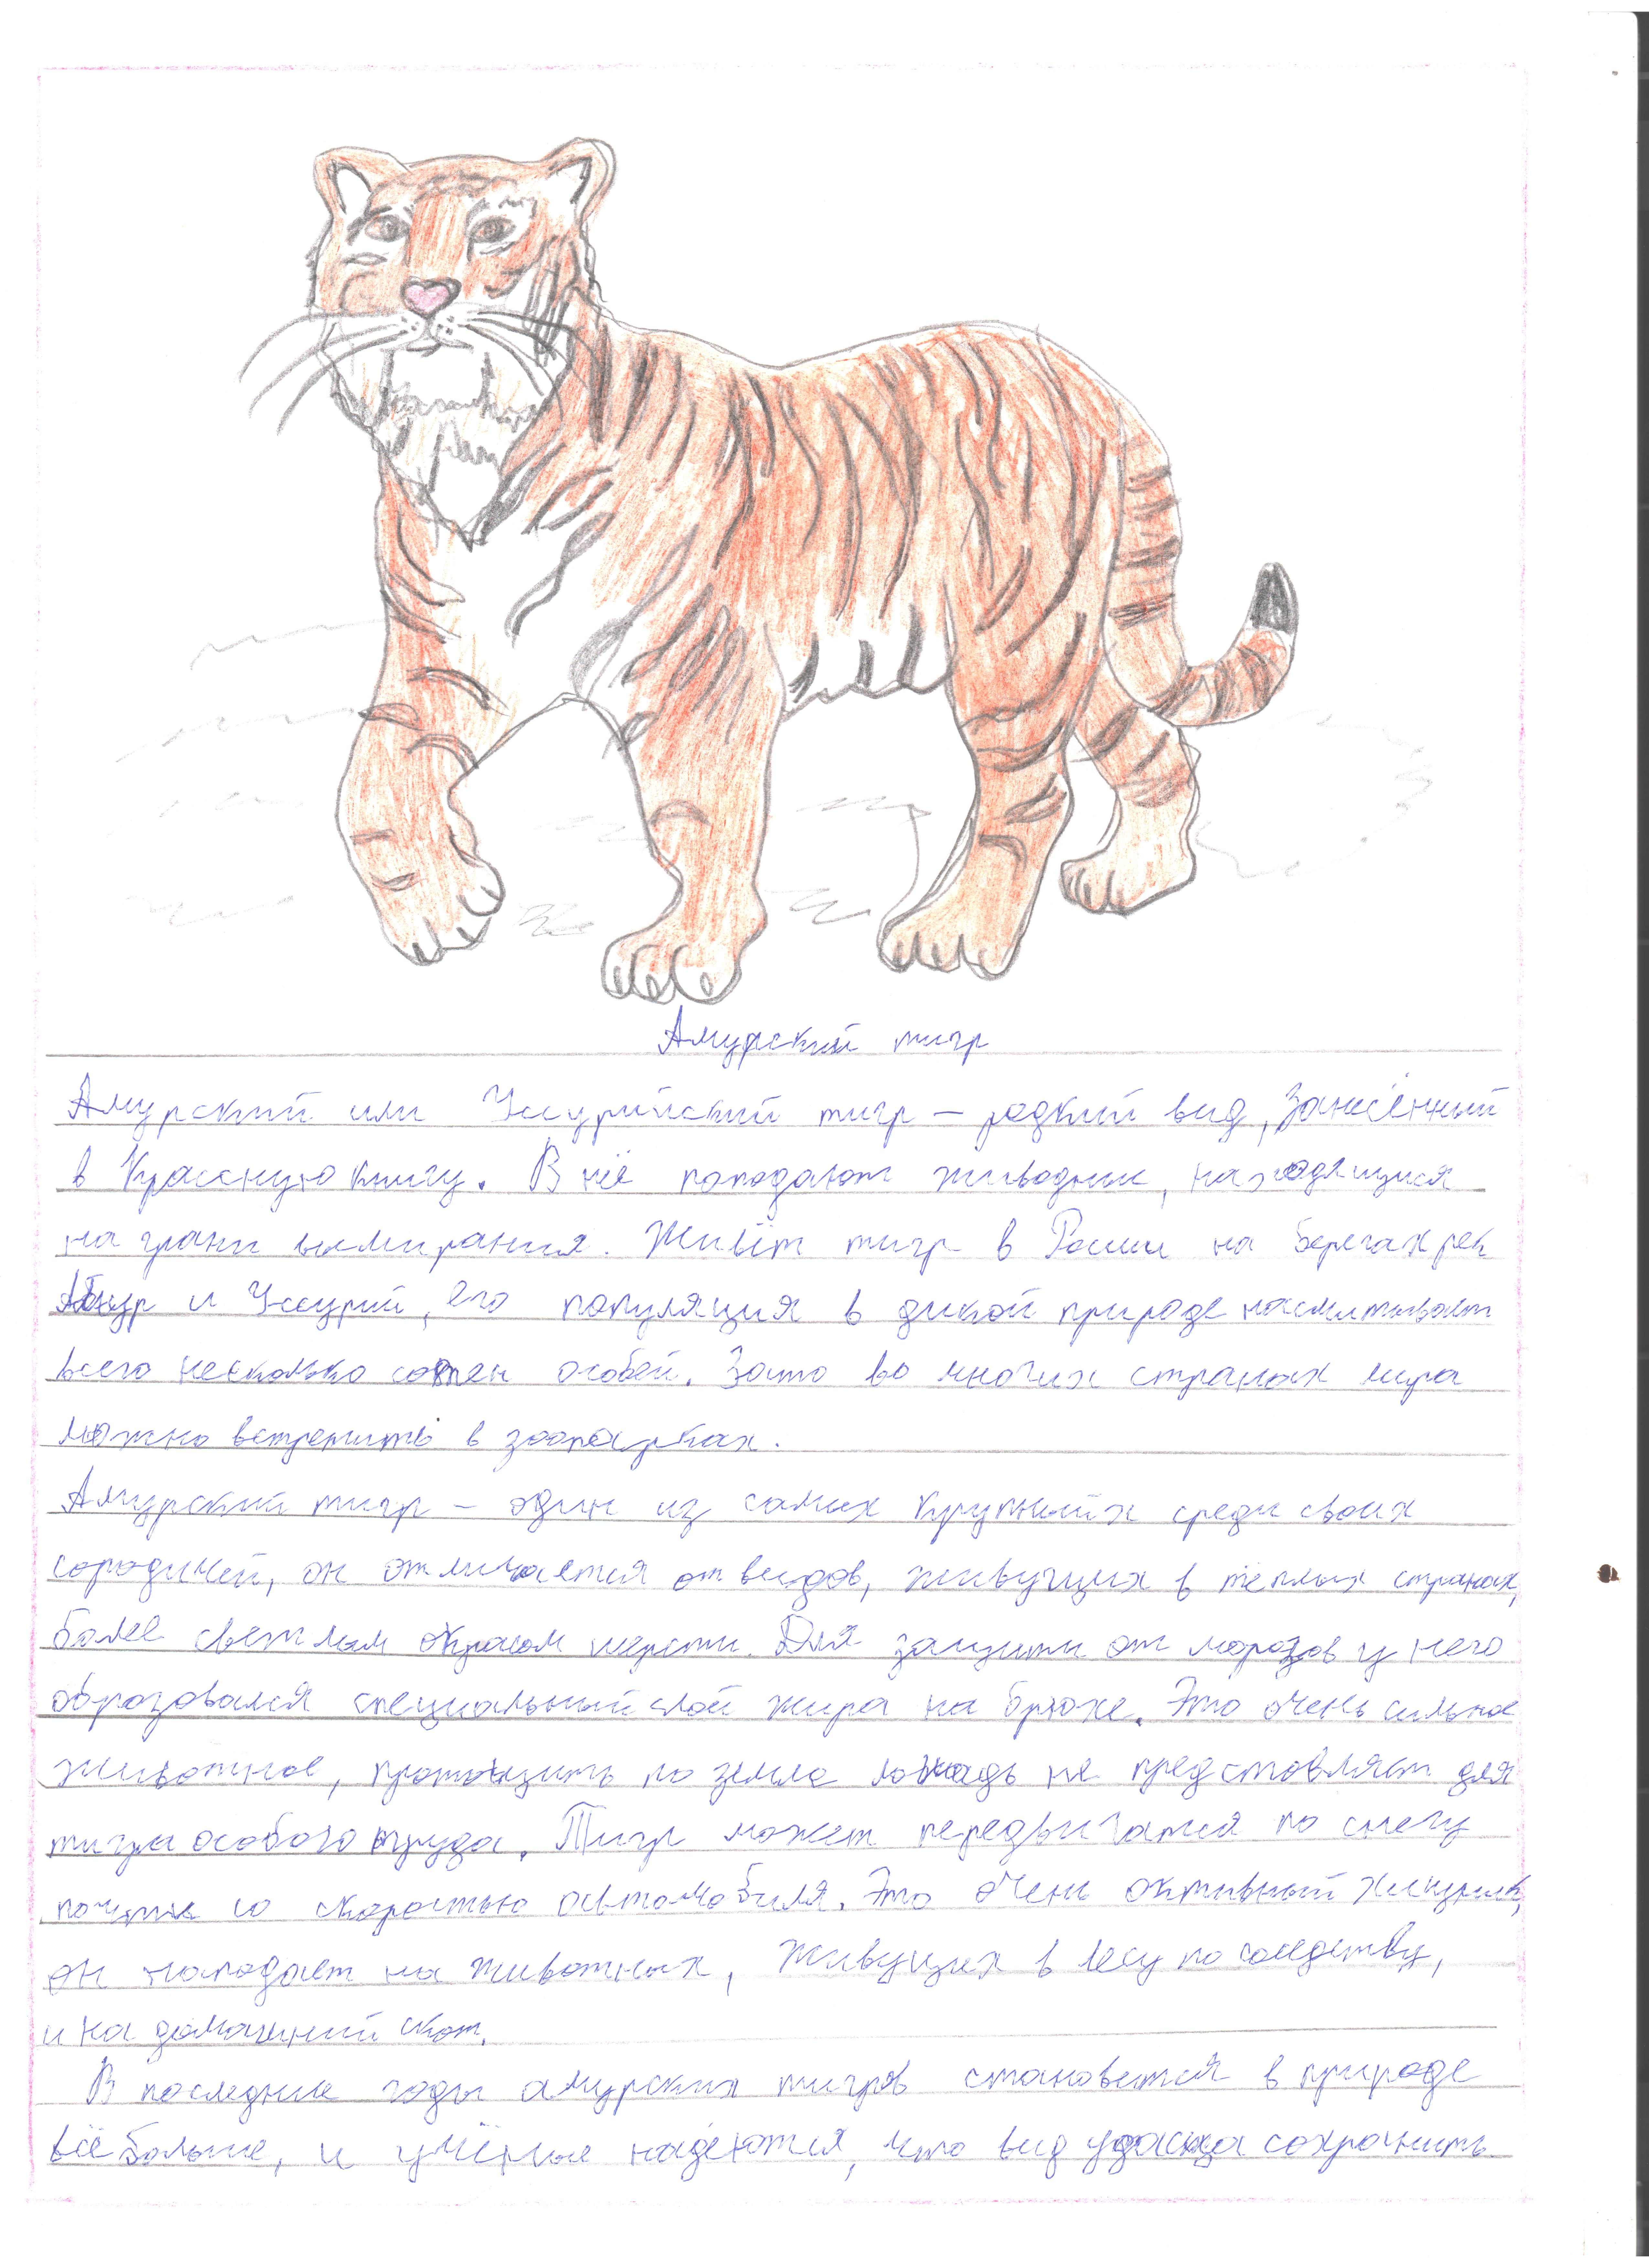 Амурский тигр
Амурский или Уссурийский тигр – редкий вид, занесённый
в Красную книгу. В неё попадают животные, находящиеся
на грани вымирания. Живёт тигр в России на берегах рек
Амур и Уссурий, его популяция в дикой природе насчитывает
всего несколько сотен особей. Зато во многих странах мира
можно встретить в зоопарках.
Амурский тигр – один из самых крупных среди своих
сородичей, он отличается от видов, живущих в тёплых странах,
более светлым окрасом шерсти. Для защиты от морозов у него
образовался специальный слой жира на брюхе. Это очень сильное
животное, протащить по земле лошадь не представляет для
тигра особого труда. Тигр может передвигатся по снегу
почти со скоростью автомобиля. Это очень активный хищник,
он нападает на животных, живущих в лесу по соседству,
и на домашний скот.
В последние годы амурских тигров становится в природе
всё больше, и учёные надеются, что вид удасца сохранить